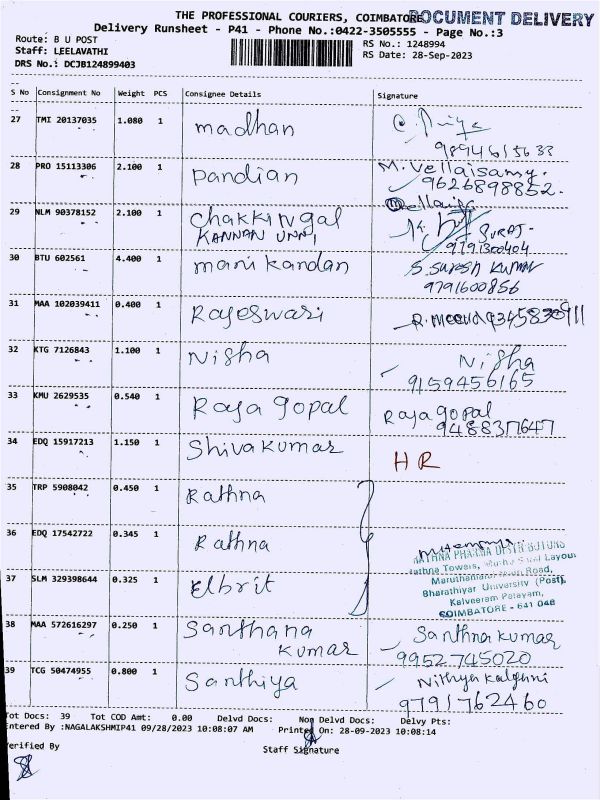 THE PROFESSIONAL COURIERS, COIMBATORE DOCUMENT DELIVERY
Delivery Runsheet - P41 - Phone No.:0422-3505555 - Page No.:3
Route: B U POST
RS No.: 1248994
Staff: LEELAVATHI
RS Date: 28-Sep-2023
DRS No.: DCJB124899403
S No Consignment No Weight PCS Consignee Details Signature
27 TMI 20137035 1.080 1 madhan
9894615633
28 PRO 15113306 2.100 1 Pandian M. Vellaisamy.
9626898852.
29 NLM 90378152 2.100 1 Chakkingal
KANNAN UNNI SURAJ-
9791300404
30 BTU 602561 4.400 1 manikandan S. SURESH KUMAR
9791600856
31 MAA 102039411 0.400 1 Rajeswari R. Meena
32 KTG 7126843 1.100 1 Nisha Nisha
9159456165
33 KMU 2629535 0.540 1 Raja gopal Raja gopal
9488371647
34 EDQ 15917213 1.150 1 Shivakumar HR
35 TRP 5908042 0.450 1 Rathna
36 EDQ 17542722 0.345 1 Rathna
RATHNA PHARMA DISTRIBUTORS
Rathna Towers, Layout
37 SLM 329398644 0.325 1 Elbrit Maruthamalai Main Road,
Bharathiyar University (Post),
Kalveeram Palayam,
COIMBATORE - 641 046
38 MAA 572616297 0.250 1 Santhana
kumar Santhna kumar
9952745020
39 TCG 50474955 0.800 1 Santhiya Nithya kalyani
9791762460
Tot Docs: 39 Tot COD Amt: 0.00 Delvd Docs: Non Delvd Docs: Delvy Pts:
Entered By :NAGALAKSHMIP41 09/28/2023 10:08:07 AM Printed On: 28-09-2023 10:08:14
Verified By Staff Signature